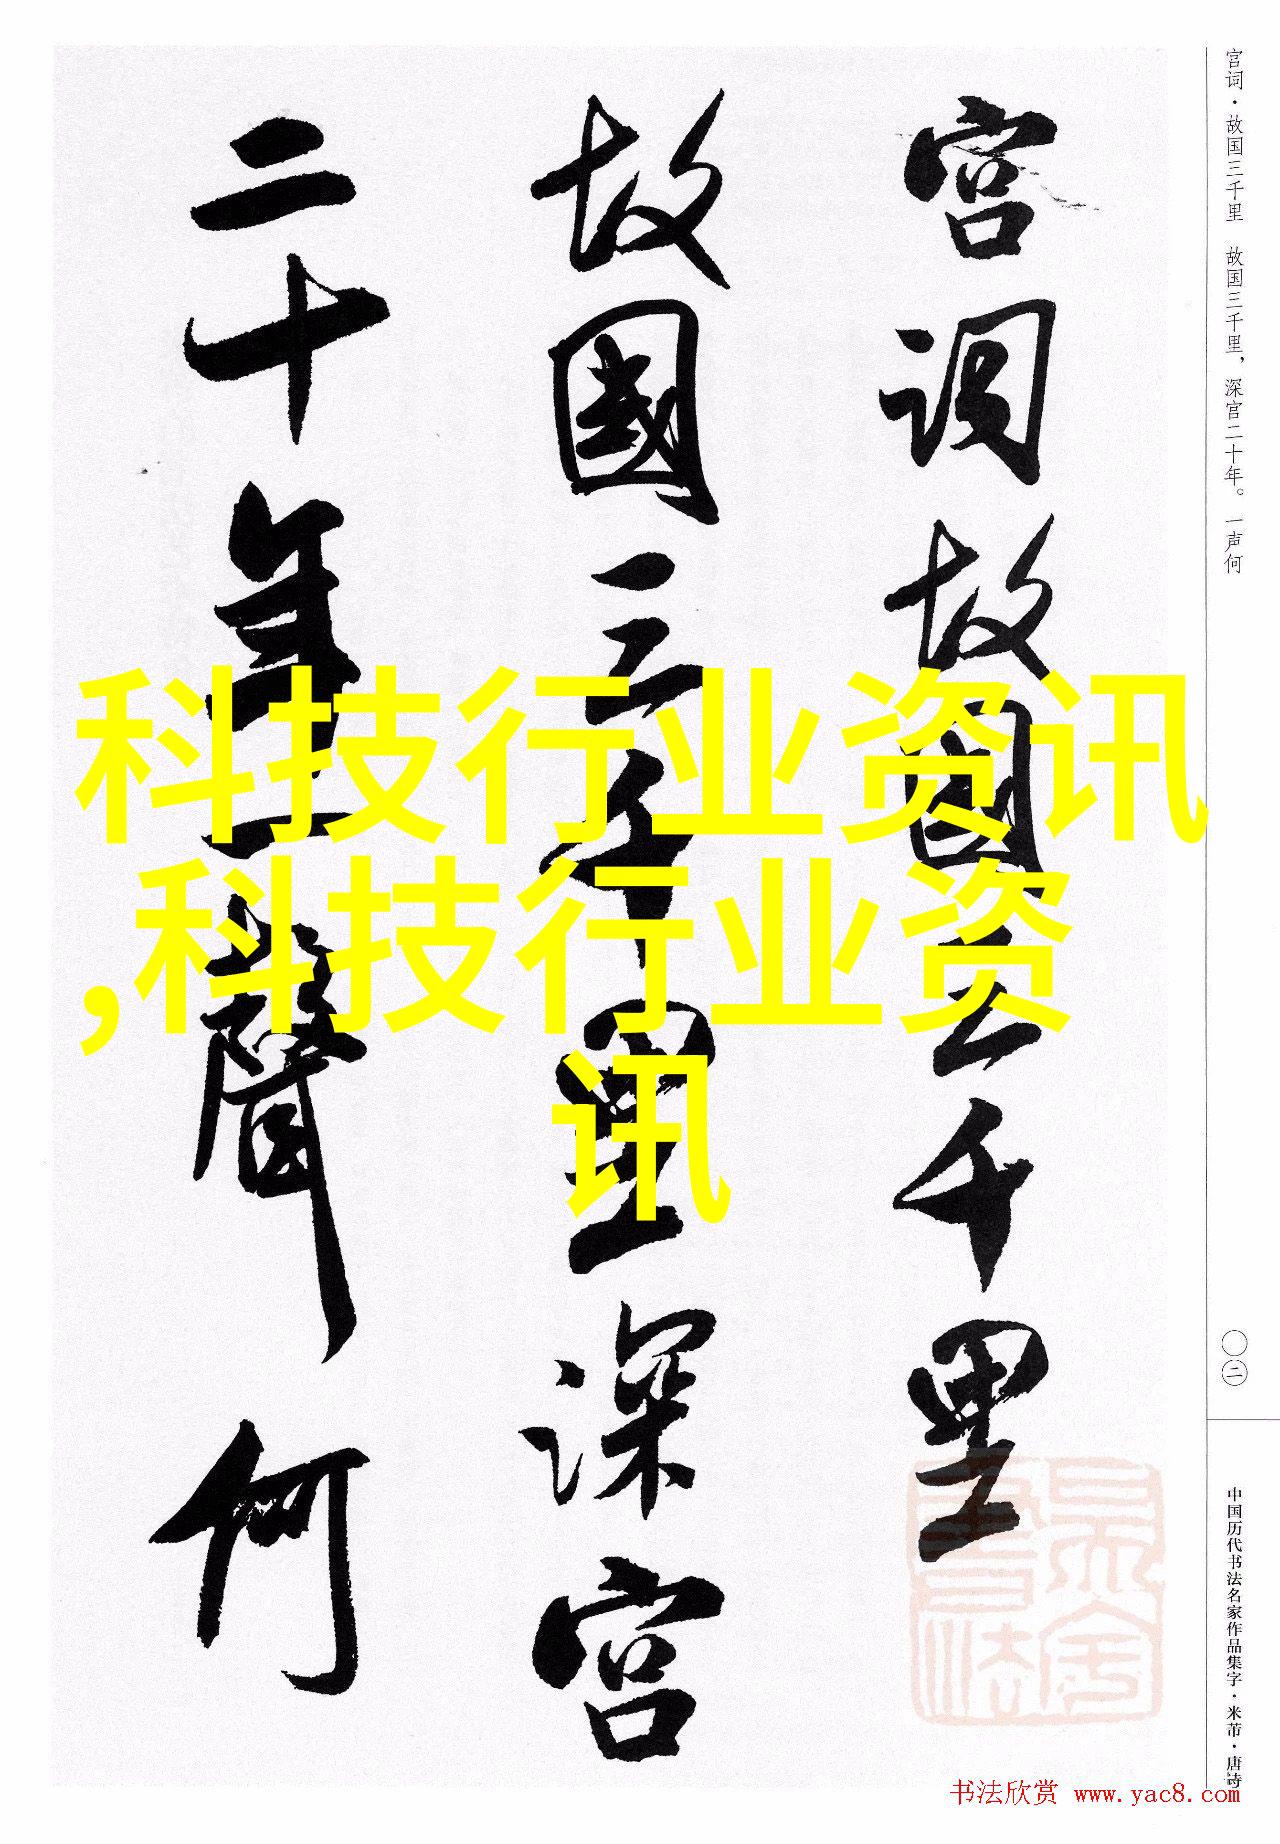 宫词故國三千里
故國三千里深宫
二十年一聲何
科技行业资讯
,科技行业资
讯
宫词·故国三千里 故国三千里，深宫二十年。一声何
〇二
中国历代书法名家作品集字·米芾·唐诗
书法欣赏 www.yac8.com